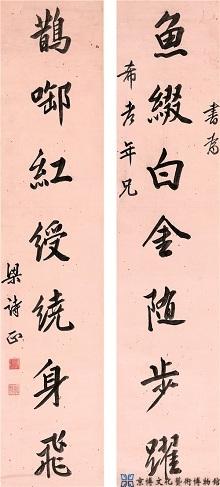 魚綴白金随步躍
書
希老年兄
鵲啣紅綬繞身飛
梁詩正
京博文化藝術博物館